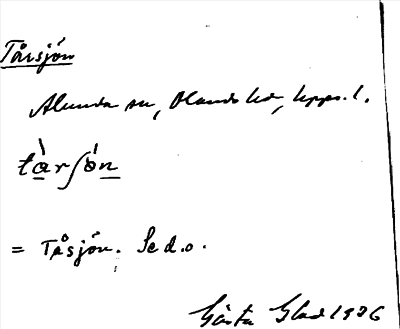 Tårsjön
Alunda sn, Olands hd, Upps. l.
tàrʃön
= Tåsjön. Se d.o.
Gösta Glad 1926